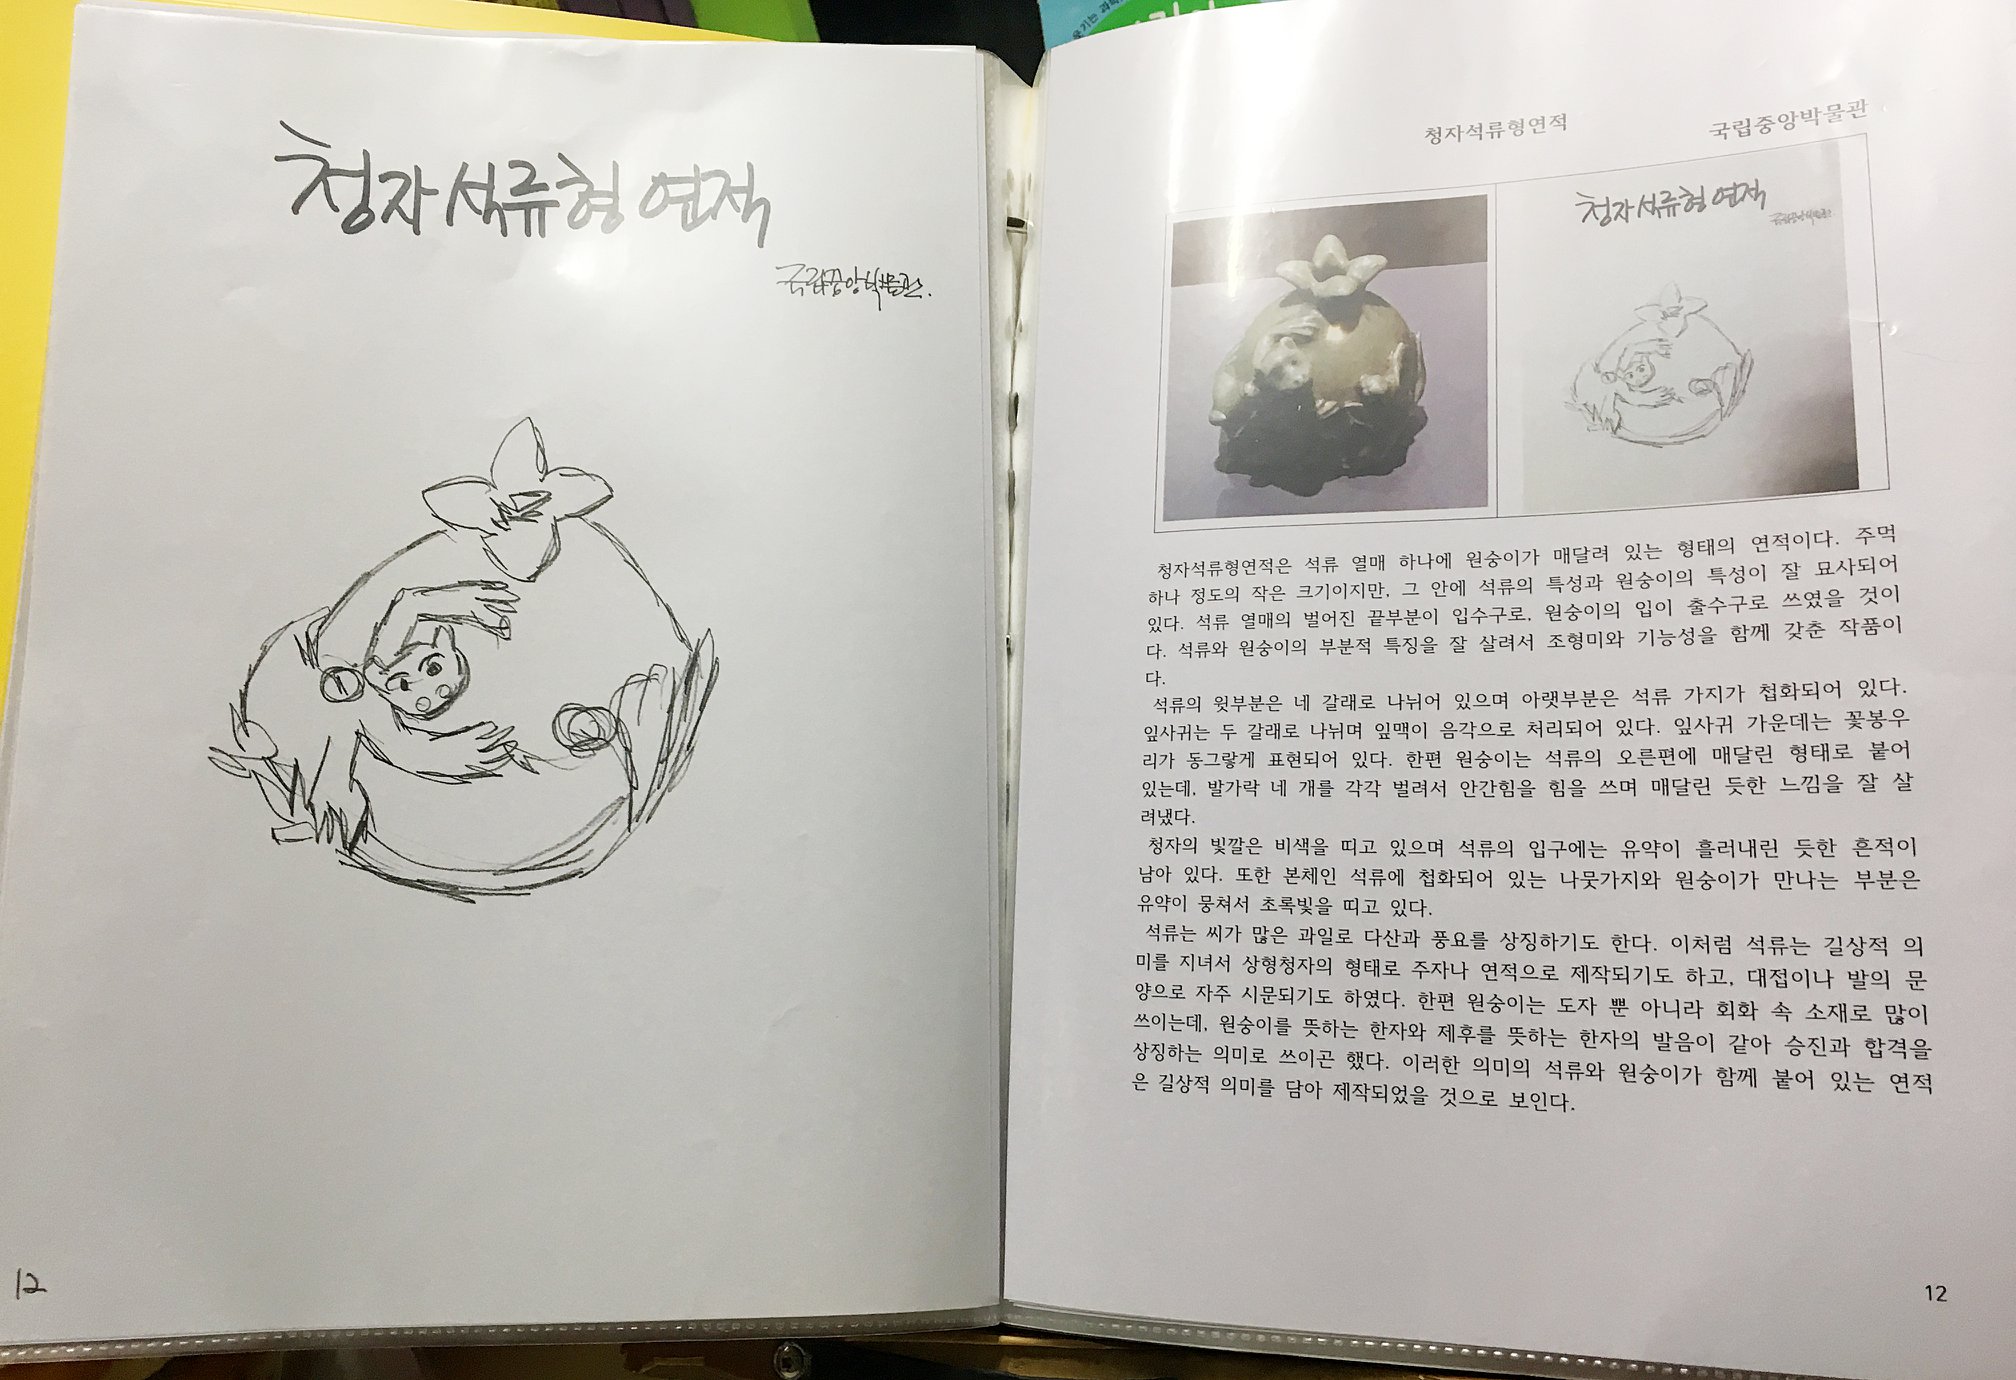 청자석류형 연적
국립중앙박물관.
12
청자석류형연적
국립중앙박물관
청자석류형 연적
국립중앙박물관.
청자석류형연적은 석류 열매 하나에 원숭이가 매달려 있는 형태의 연적이다. 주먹
하나 정도의 작은 크기이지만, 그 안에 석류의 특성과 원숭이의 특성이 잘 묘사되어
있다. 석류 열매의 벌어진 끝부분이 입수구로, 원숭이의 입이 출수구로 쓰였을 것이
다. 석류와 원숭이의 부분적 특징을 잘 살려서 조형미와 기능성을 함께 갖춘 작품이
다.
석류의 윗부분은 네 갈래로 나뉘어 있으며 아랫부분은 석류 가지가 첩화되어 있다.
잎사귀는 두 갈래로 나뉘며 잎맥이 음각으로 처리되어 있다. 잎사귀 가운데는 꽃봉우
리가 동그랗게 표현되어 있다. 한편 원숭이는 석류의 오른편에 매달린 형태로 붙어
있는데, 발가락 네 개를 각각 벌려서 안간힘을 힘을 쓰며 매달린 듯한 느낌을 잘 살
려냈다.
청자의 빛깔은 비색을 띠고 있으며 석류의 입구에는 유약이 흘러내린 듯한 흔적이
남아 있다. 또한 본체인 석류에 첩화되어 있는 나뭇가지와 원숭이가 만나는 부분은
유약이 뭉쳐서 초록빛을 띠고 있다.
석류는 씨가 많은 과일로 다산과 풍요를 상징하기도 한다. 이처럼 석류는 길상적 의
미를 지녀서 상형청자의 형태로 주자나 연적으로 제작되기도 하고, 대접이나 발의 문
양으로 자주 시문되기도 하였다. 한편 원숭이는 도자 뿐 아니라 회화 속 소재로 많이
쓰이는데, 원숭이를 뜻하는 한자와 제후를 뜻하는 한자의 발음이 같아 승진과 합격을
상징하는 의미로 쓰이곤 했다. 이러한 의미의 석류와 원숭이가 함께 붙어 있는 연적
은 길상적 의미를 담아 제작되었을 것으로 보인다.
12